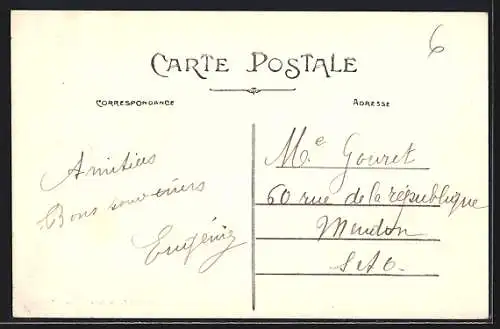 6
CARTE POSTALE
CORRESPONDANCE
ADRESSE
Amitiés
Bons souvenirs
Eugénie
Me Gouret
60 rue de la république
Meudon
S et O.